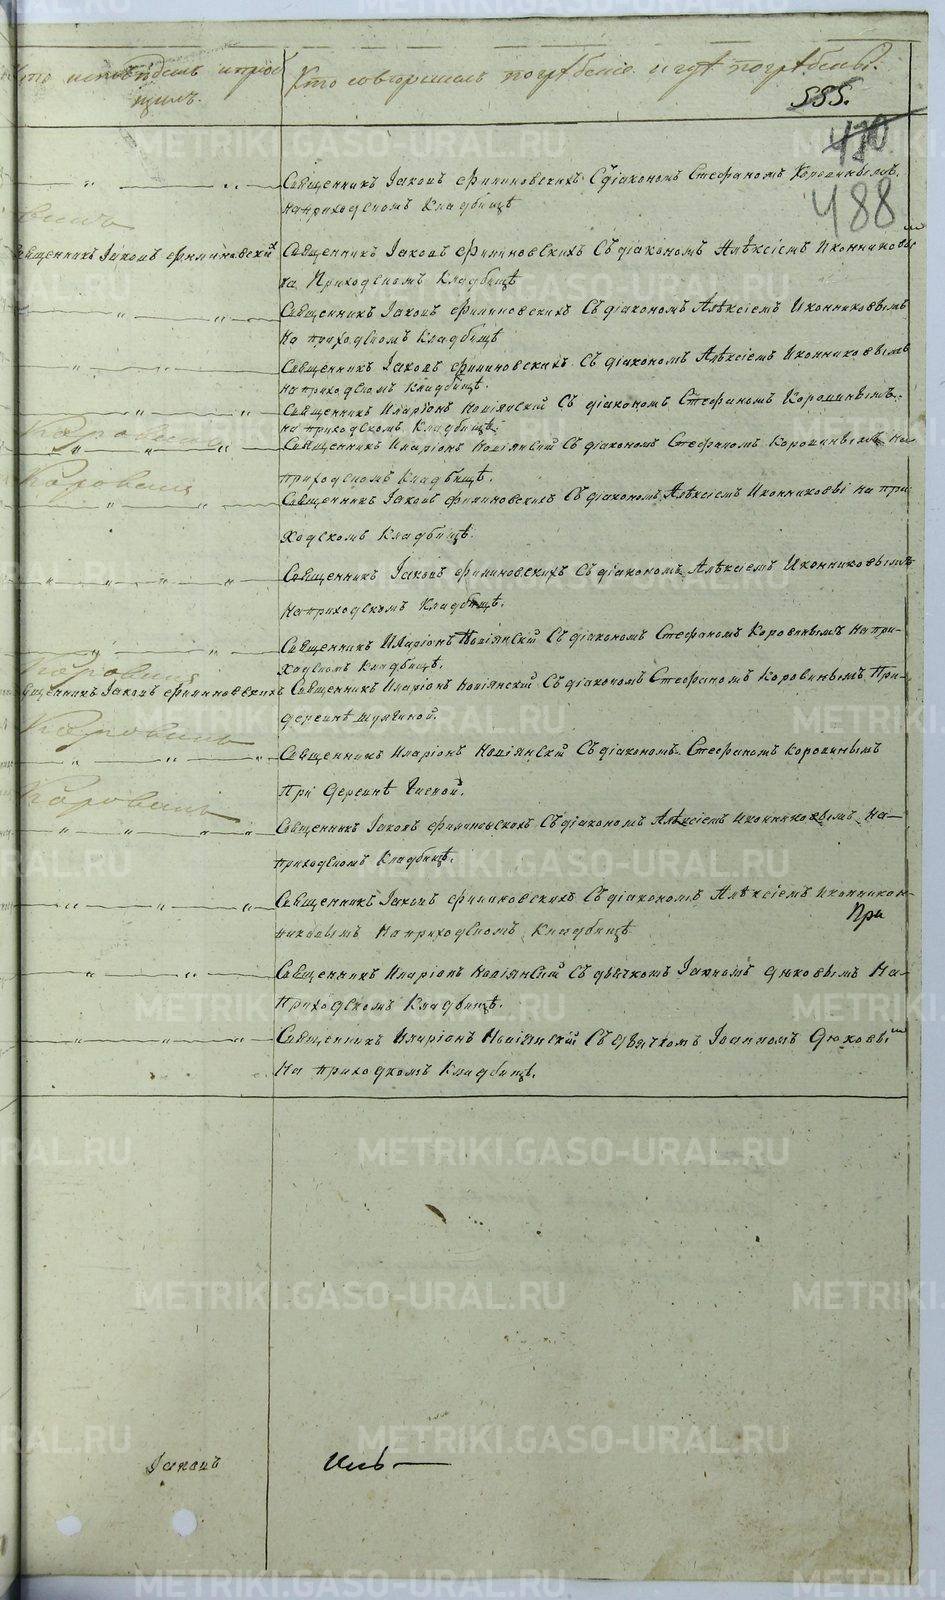 Кто исповѣдалъ и прио-
щилъ.
Кто совершалъ погрѣбение и гдѣ погрѣбены.
555.
470
488
Священникъ Іаковъ Филиповскихъ Съ діакономъ Стефаномъ Коровинымъ.
На приходскомъ Кладбищѣ
винъ
Священникъ Іаковъ Филиповских
Священникъ Іаковъ Филиповскихъ Съ діакономъ Алѣксіемъ Иконниковы
На Приходскомъ Кладбищѣ
Священникъ Іаковъ Филиповскихъ Съ діакономъ Алѣксіемъ Иконниковымъ
На приходскомъ Кладбищѣ
Священникъ Іаковъ Филиповскихъ Съ діакономъ Алѣксіемъ Иконниковымъ
На приходскомъ Кладбищѣ.
Священникъ Иларіонъ Съ діакономъ Стефаномъ Коровинымъ
на приходскомъ Кладбищѣ.
Коровинъ
Священникъ Иларіонъ Съ діакономъ Стефаномъ Коровинымъ На
приходскомъ Кладбищѣ.
Коровинъ
Священникъ Іаковъ Филиповскихъ Съ діакономъ Алѣксіемъ Иконниковы на при
ходскомъ Кладбищѣ.
Священникъ Іаковъ Филиповскихъ Съ діакономъ Алѣксіемъ Иконниковымъ
На приходскомъ Кладбищѣ.
Священникъ Иларіонъ Съ діакономъ Стефаномъ Коровинымъ На при-
ходскомъ Кладбищѣ.
Коровинъ
Священникъ Іаковъ Филиповскихъ
Священникъ Иларіонъ Съ діакономъ Стефаномъ Коровинымъ При-
деревнѣ
Коровинъ
Священникъ Иларіонъ Съ діакономъ Стефаномъ Коровинымъ
При деревнѣ
Коровинъ
Священникъ Іаковъ Филиповскихъ Съ діакономъ Алѣксіемъ Иконниковымъ На-
приходскомъ Кладбищѣ.
Священникъ Іаковъ Филиповскихъ Съ діакономъ Алѣксіемъ Иконникон-
никовымъ На приходскомъ Кладбищѣ
При
Священникъ Иларіонъ Съ дьячкомъ Іанномъ Дюковымъ На-
Приходскомъ Кладбищѣ.
Священникъ Иларіонъ Съ дьячкомъ Іоанномъ Дюковы
На приходкомъ Кладбищѣ.
Іаковъ
METRIKI.GASO-URAL.RU